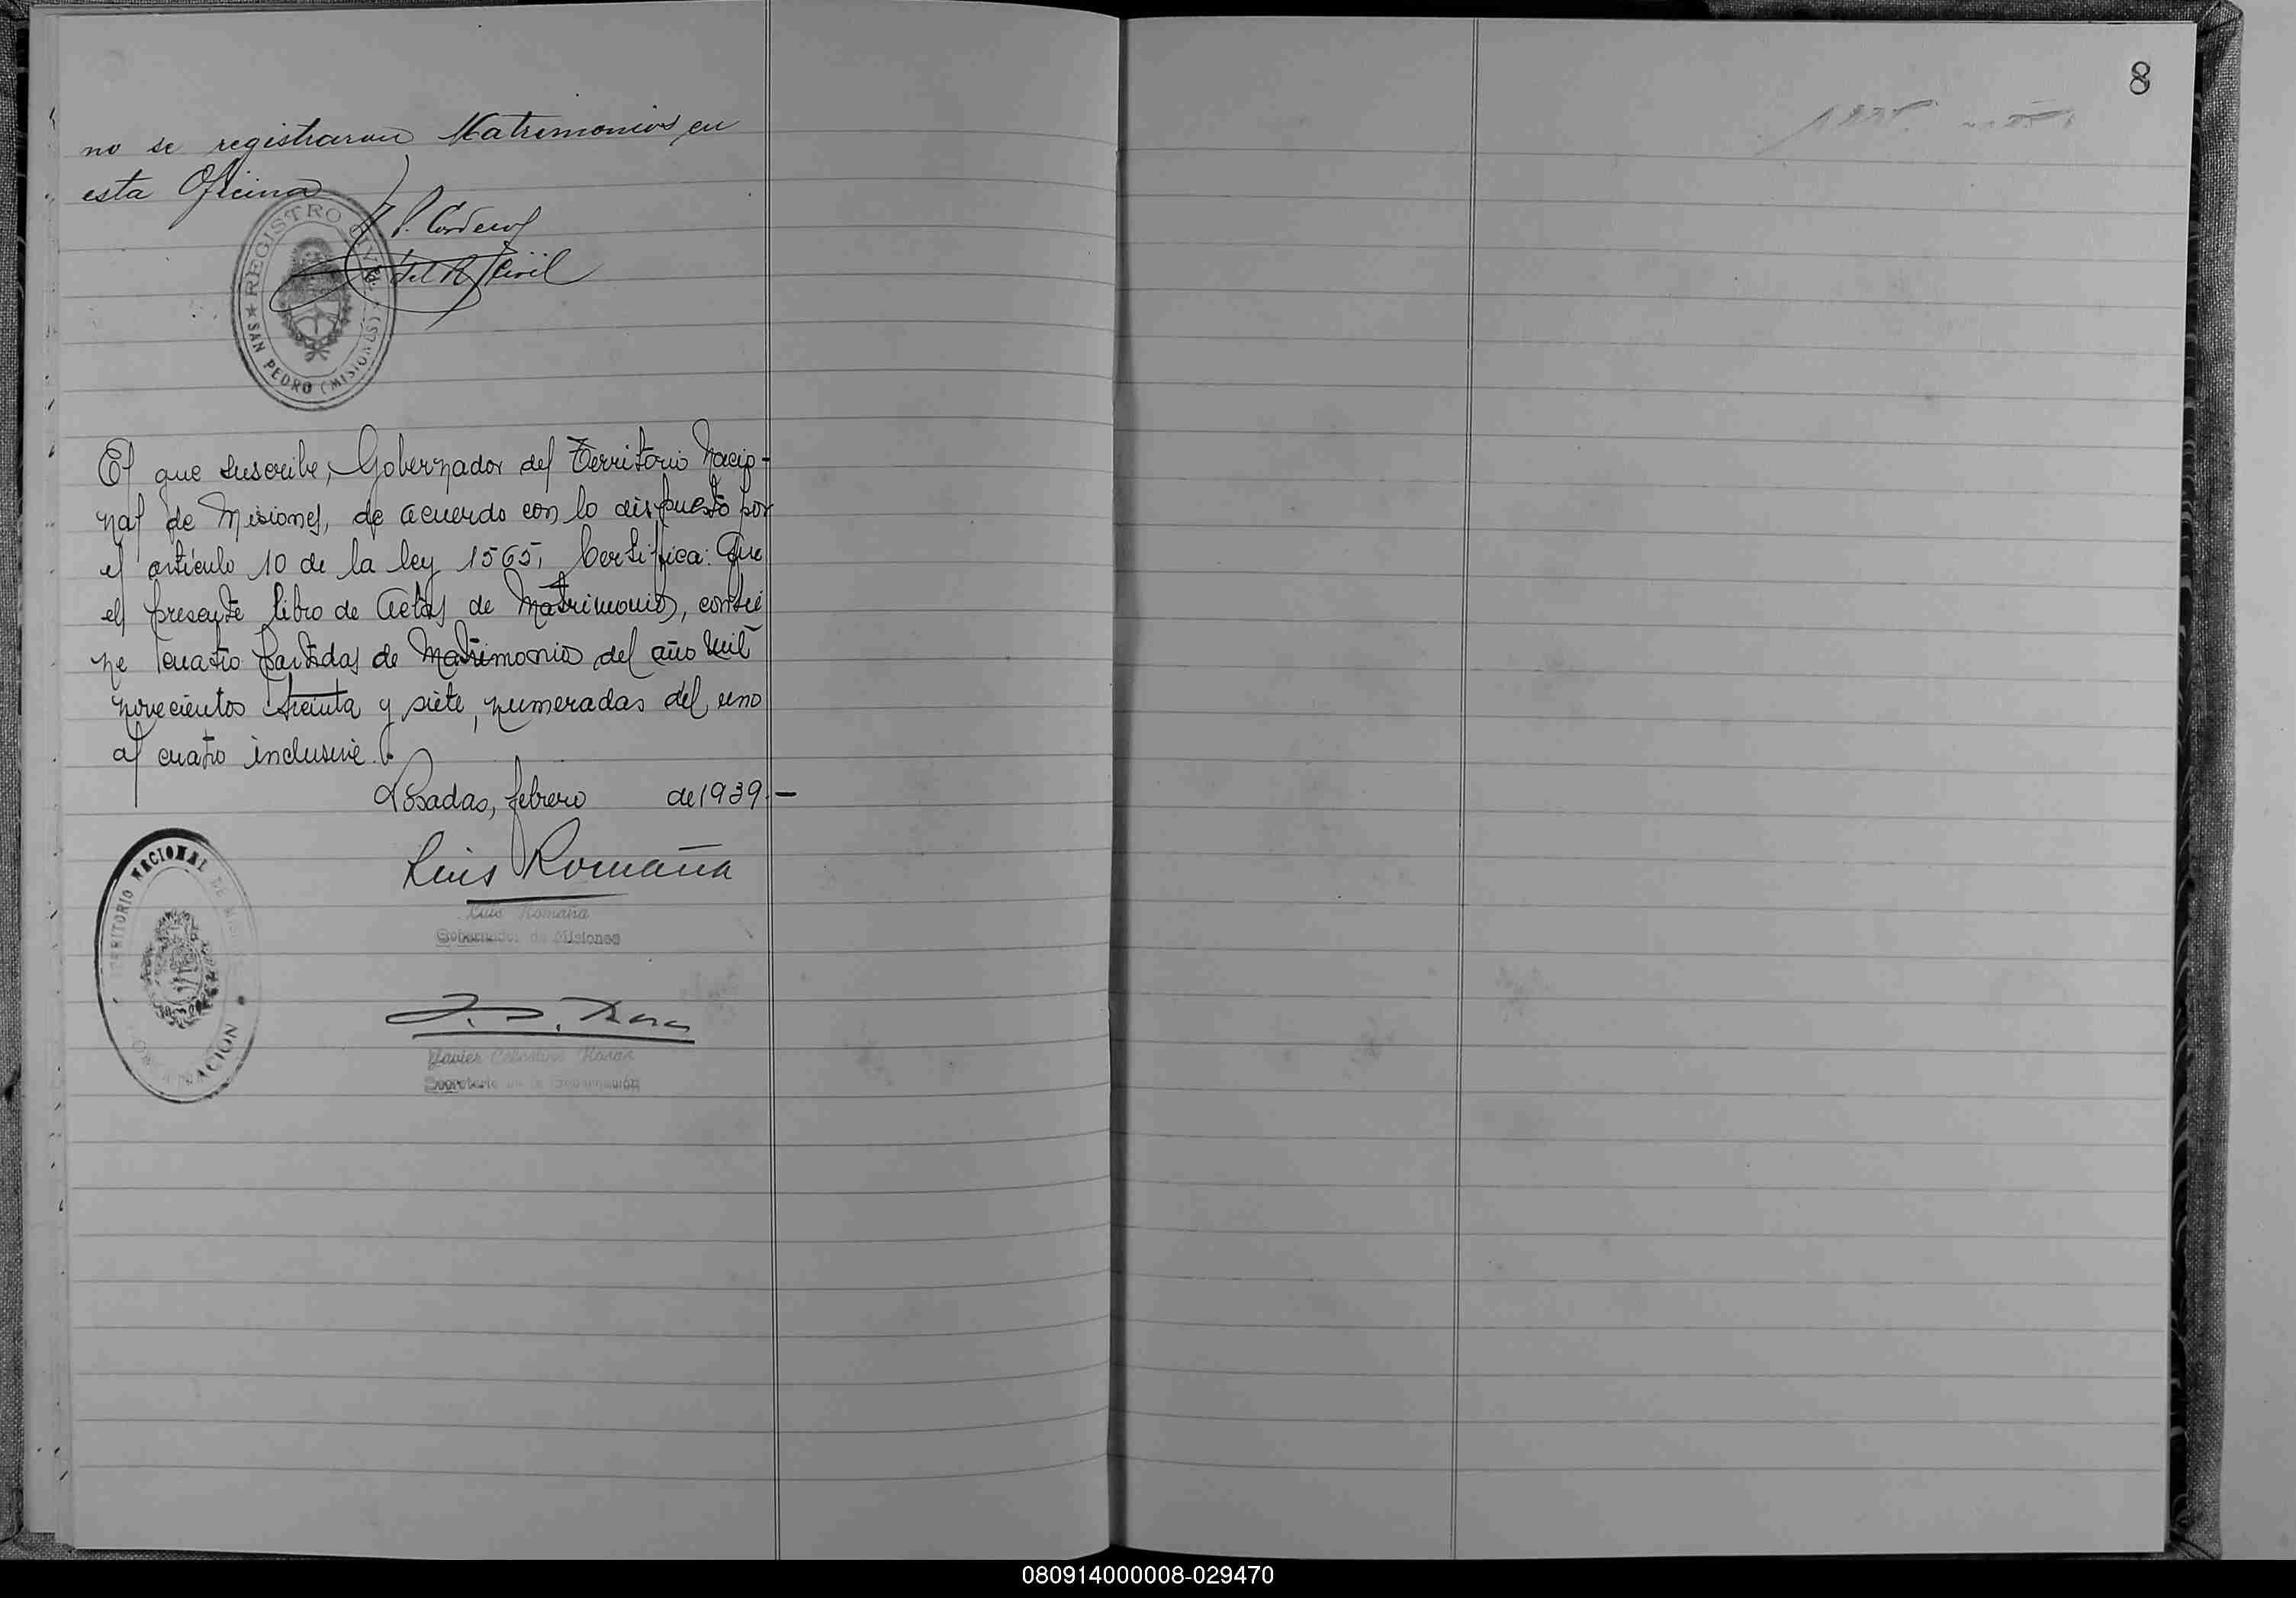 no se registraron Matrimonios en
esta Oficina
P. Cordero
E. del R. Civil
★ REGISTRO CIVIL ★
SAN PEDRO (MISIONES)
El que suscribe, Gobernador del Territorio Nacio-
nal de Misiones, de acuerdo con lo dispuesto por
el artículo 10 de la ley 1565, Certifica: Que
el presente libro de Actas de Matrimonio, contie
ne cuatro partidas de Matrimonio del año mil
novecientos treinta y siete, numeradas del uno
al cuatro inclusive.
Posadas, febrero de 1939.—
Luis Romaña
Luis Romaña
Gobernador de Misiones
TERRITORIO NACIONAL DE MISIONES
GOBERNACION
Javier
Secretario de la Gobernación
8
080914000008-029470